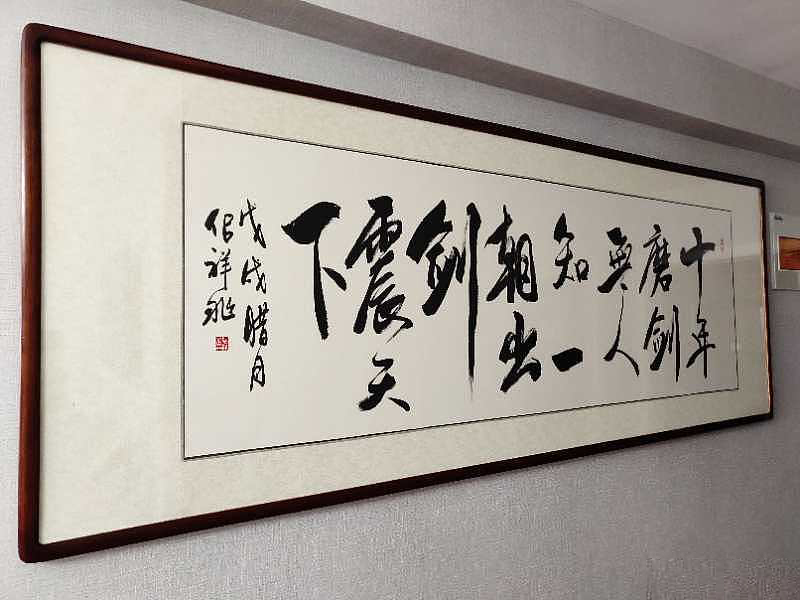 十年
磨剑
無人
知一
朝出
剑
震天
下
戊戌腊月
祥